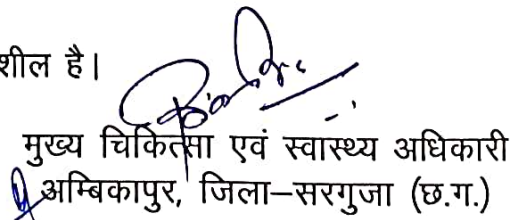 शील है।
मुख्य चिकित्सा एवं स्वास्थ्य अधिकारी
अम्बिकापुर, जिला–सरगुजा (छ.ग.)